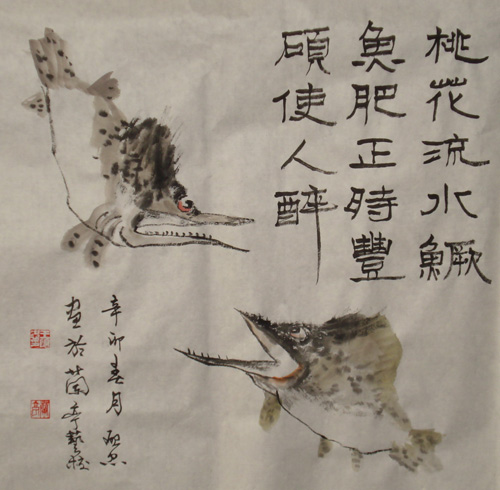 桃花流水鱖
魚肥正時豐
碩使人醉
辛卯春月
画於蘭亭藝